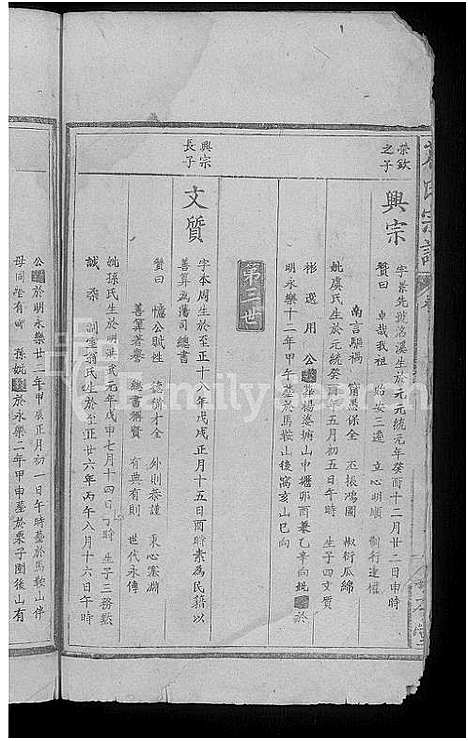 榮欽之子
興宗
字景先號洛溪生於元元統元年癸酉十二月廿二日申時
贊曰 卓哉我祖 始安三遷 立心明順 制行達權
南言驅禍 甯愚保全 丕振鴻圖 椒衍瓜綿
妣虞氏生於元統癸酉年五月初五日午時 生子四文質
彬 選 用 公葬楊婆塘山中壠卯酉兼乙辛向妣於
明永樂十二年甲午葬於馬鞍山後窩亥山巳向
第二世
興宗長子
文質
字本周生於至正十八年戊戌正月十五日酉時素為民籍以
善算為藩司總書
贊曰 懷公賦性 德備才全 外則恭謹 秉心塞淵
善算著譽 總書稱賢 有典有則 世代永傳
妣孫氏生於明洪武元年戊申七月十四日丁時 生子三務懃
誠 忝 副室翁氏生於至正廿六年丙午八月十六日午時
公於明永樂廿二年甲辰正月初一日午時葬於馬鞍山伴
母同陰有 孫妣於永樂二年甲申葬於栗子園後山有
familysearch